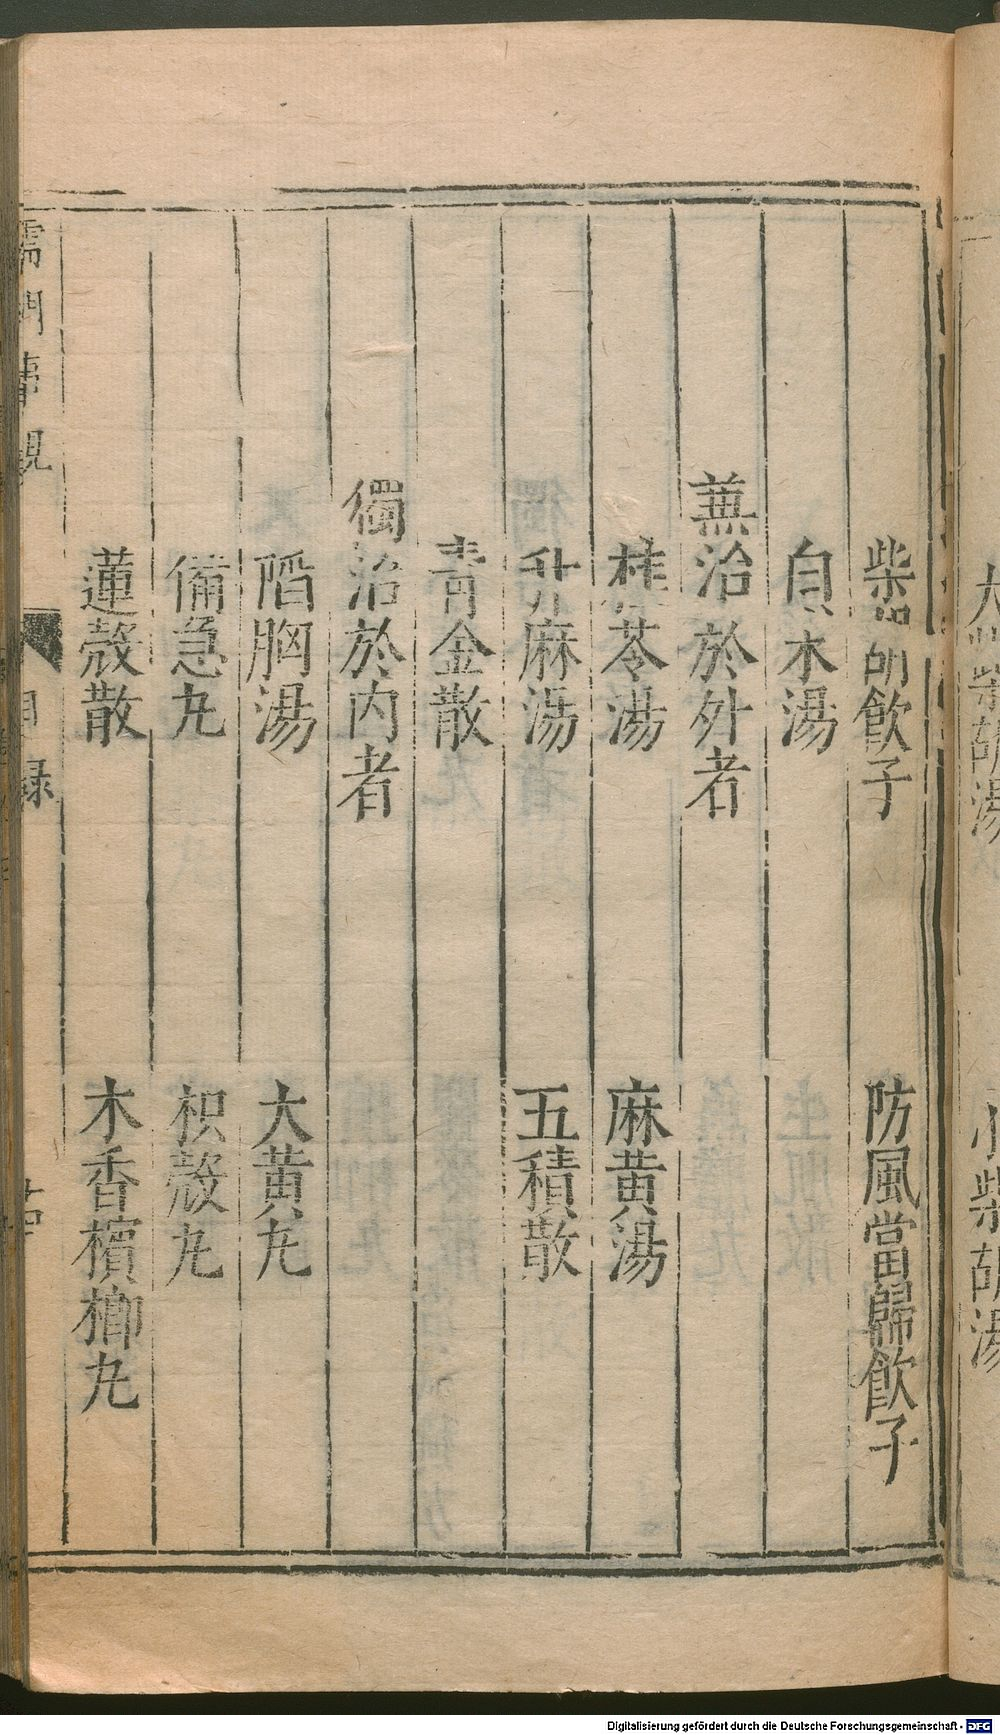 柴胡飲子　防風當歸飲子
白朮湯
蕪治於外者
桂苓湯　麻黃湯
升麻湯　五積散
青金散
獨治於内者
陷胸湯　大黃丸
備急丸　枳殼丸
蓮殼散　木香檳榔丸
儒門事親　目錄
大柴胡湯　小柴胡湯
Digitalisierung gefördert durch die Deutsche Forschungsgemeinschaft - DFG